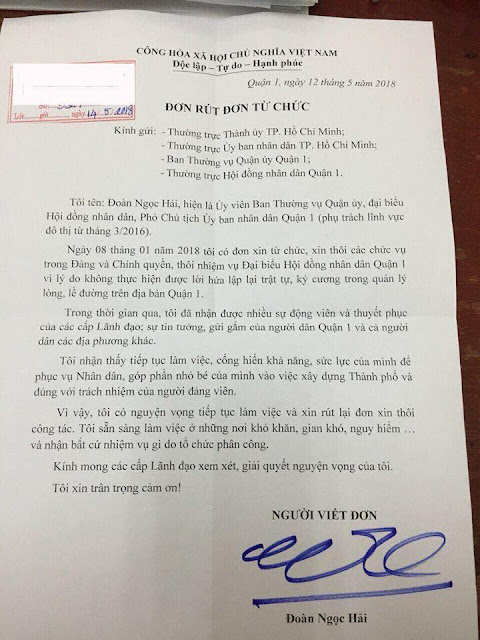 CỘNG HÒA XÃ HỘI CHỦ NGHĨA VIỆT NAM
Độc lập – Tự do – Hạnh phúc
Quận 1, ngày 12 tháng 5 năm 2018
giờ......, ngày 14/5/2018
ĐƠN RÚT ĐƠN TỪ CHỨC
Kính gửi: - Thường trực Thành ủy TP. Hồ Chí Minh;
- Thường trực Ủy ban nhân dân TP. Hồ Chí Minh;
- Ban Thường vụ Quận ủy Quận 1;
- Thường trực Hội đồng nhân dân Quận 1.
Tôi tên: Đoàn Ngọc Hải, hiện là Ủy viên Ban Thường vụ Quận ủy, đại biểu
Hội đồng nhân dân, Phó Chủ tịch Ủy ban nhân dân Quận 1 (phụ trách lĩnh vực
đô thị từ tháng 3/2016).
Ngày 08 tháng 01 năm 2018 tôi có đơn xin từ chức, xin thôi các chức vụ
trong Đảng và Chính quyền, thôi nhiệm vụ Đại biểu Hội đồng nhân dân Quận 1
vì lý do không thực hiện được lời hứa lập lại trật tự, kỷ cương trong quản lý
lòng, lề đường trên địa bàn Quận 1.
Trong thời gian qua, tôi đã nhận được nhiều sự động viên và thuyết phục
của các cấp Lãnh đạo; sự tin tưởng, gửi gắm của người dân Quận 1 và cả người
dân các địa phương khác.
Tôi nhận thấy tiếp tục làm việc, cống hiến khả năng, sức lực của mình để
phục vụ Nhân dân, góp phần nhỏ bé của mình vào việc xây dựng Thành phố và
đúng với trách nhiệm của người đảng viên.
Vì vậy, tôi có nguyện vọng tiếp tục làm việc và xin rút lại đơn xin thôi
công tác. Tôi sẵn sàng làm việc ở những nơi khó khăn, gian khó, nguy hiểm …
và nhận bất cứ nhiệm vụ gì do tổ chức phân công.
Kính mong các cấp Lãnh đạo xem xét, giải quyết nguyện vọng của tôi.
Tôi xin trân trọng cám ơn!
NGƯỜI VIẾT ĐƠN
Đoàn Ngọc Hải